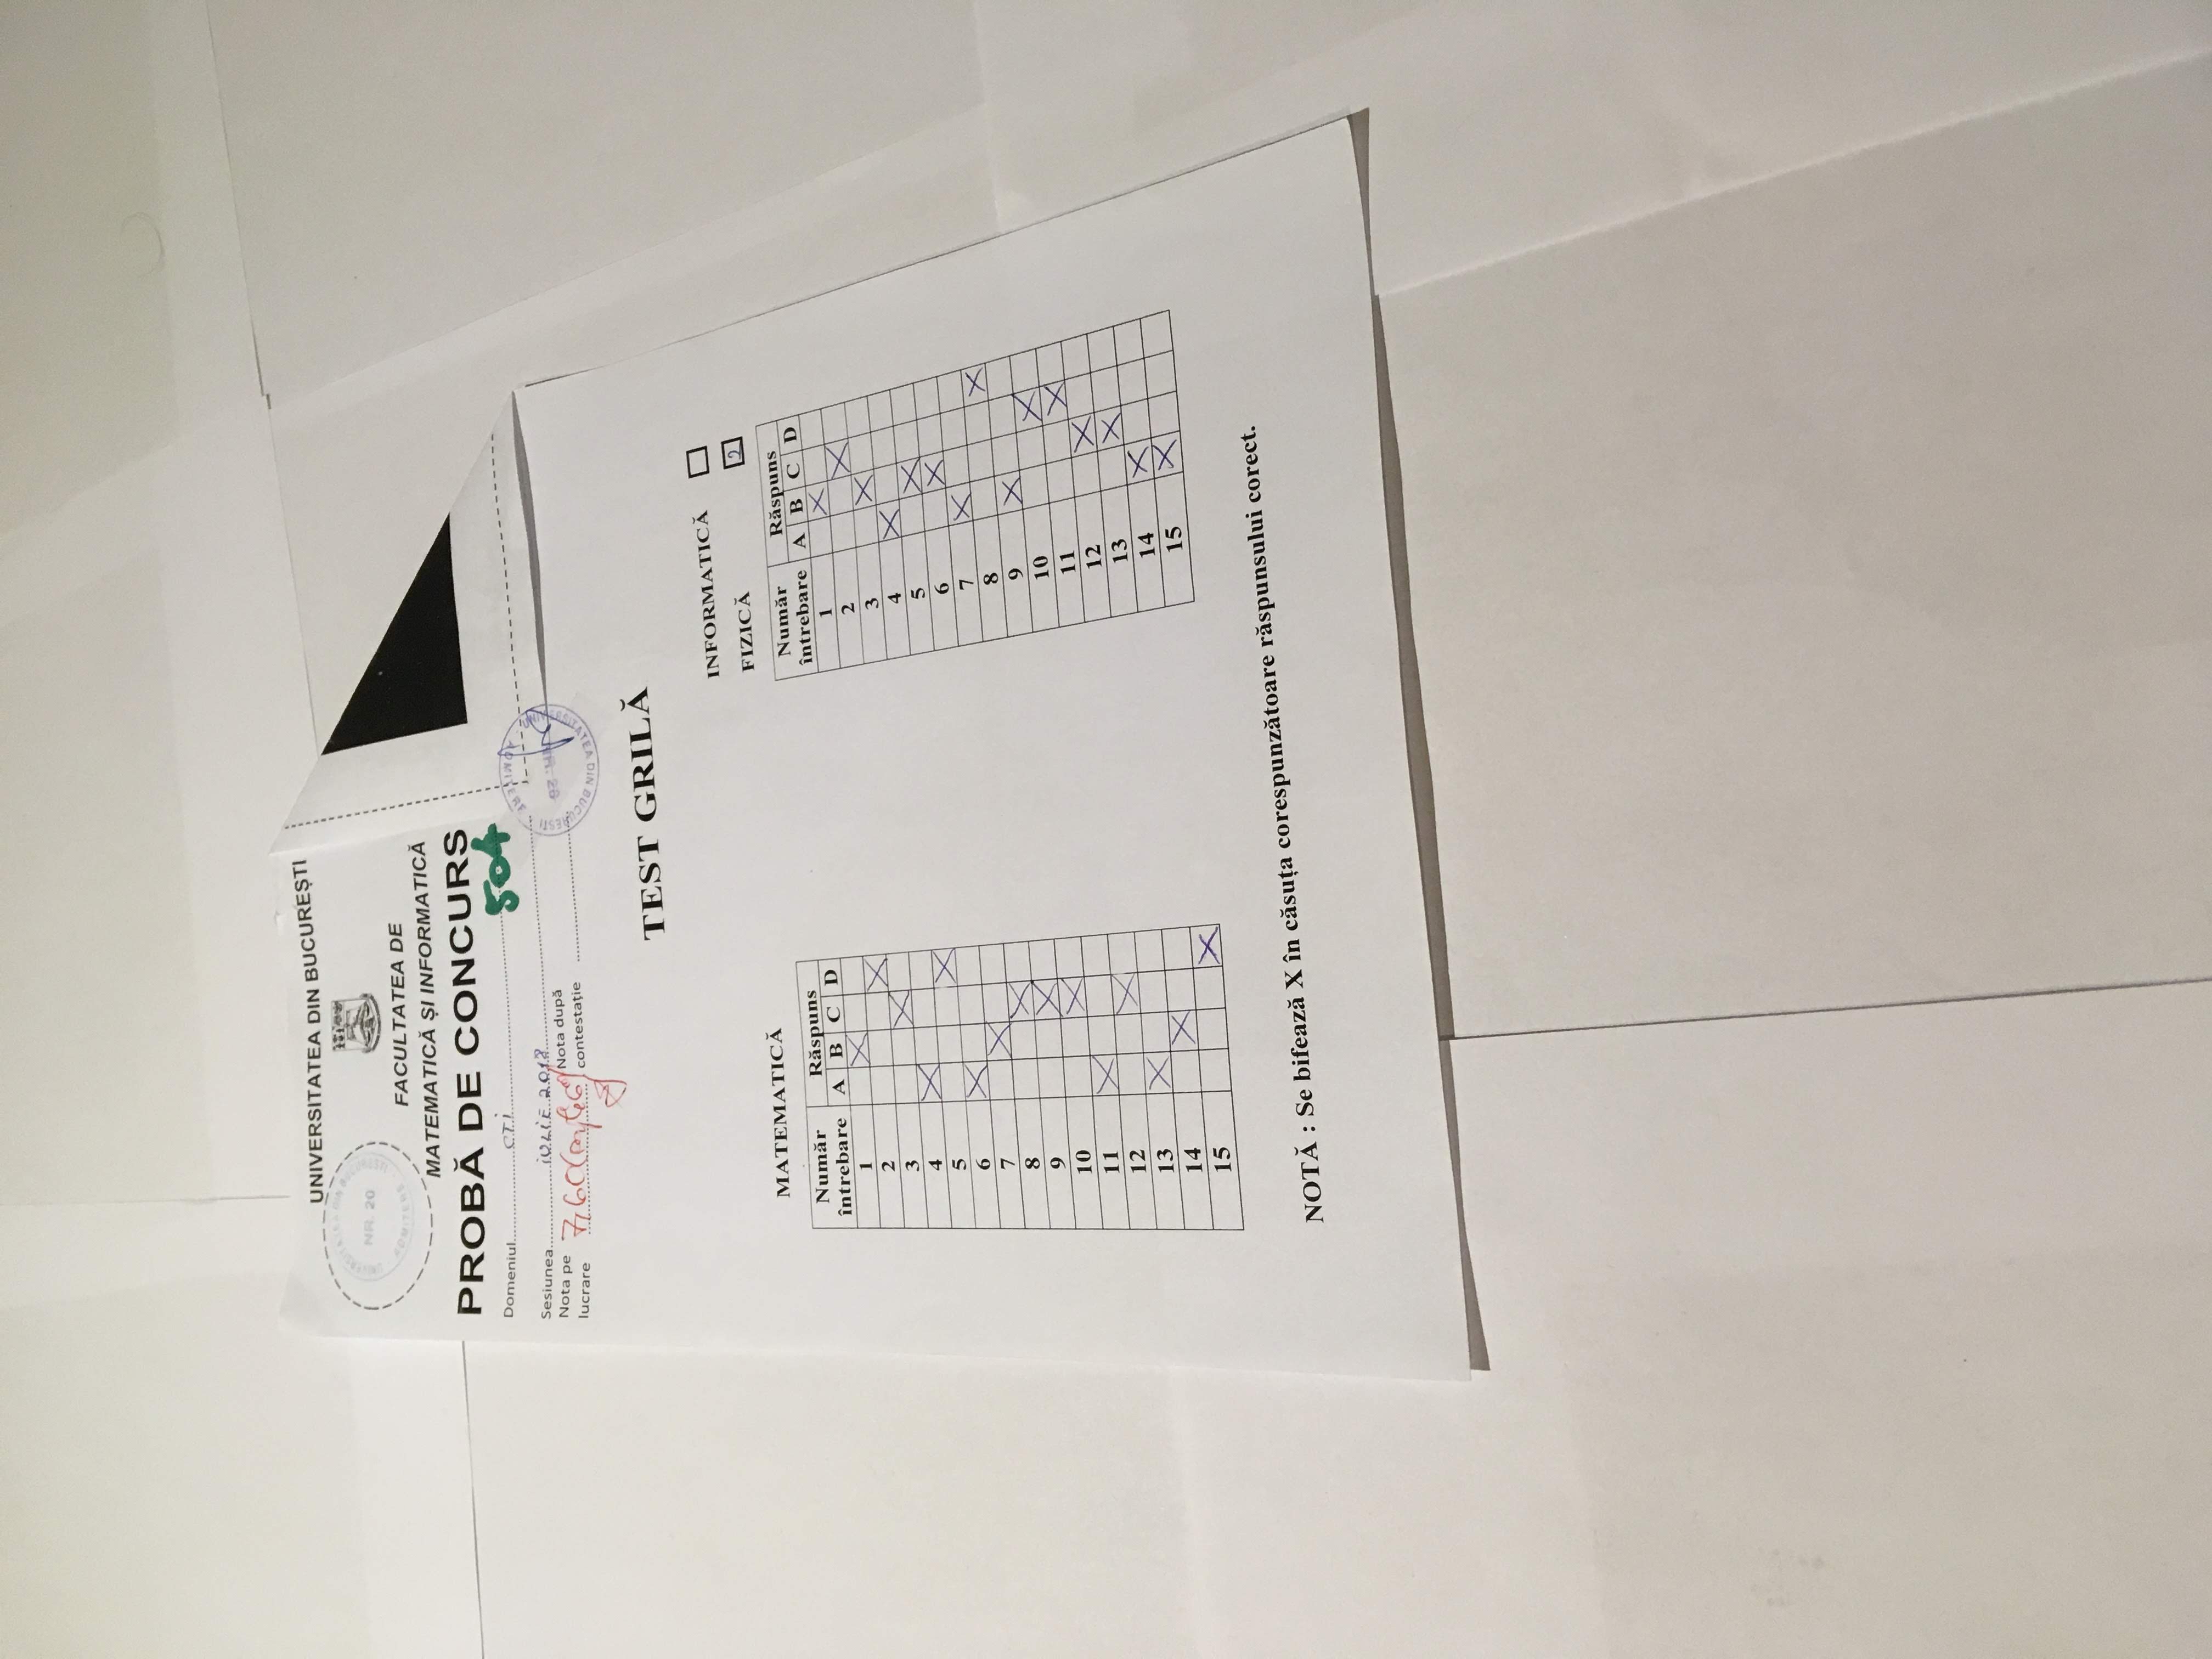 UNIVERSITATEA DIN BUCUREȘTI
UNIVERSITATEA DIN BUCUREȘTI
NR. 20
ADMITERE
FACULTATEA DE
MATEMATICĂ ȘI INFORMATICĂ
PROBĂ DE CONCURS
504
Domeniul CTI
Sesiunea IULIE 2018
Nota pe lucrare 7,60
Nota după contestație
UNIVERSITATEA DIN BUCUREȘTI
NR. 20
ADMITERE
TEST GRILĂ
INFORMATICĂ
FIZICĂ 2
MATEMATICĂ
Număr întrebare Răspuns
A B C D
1 X
2 X
3 X
4 X
5 X
6 X
7 X
8 X
9 X
10 X
11 X
12 X
13 X
14 X
15 X
Număr întrebare Răspuns
A B C D
1 X
2 X
3 X
4 X
5 X
6 X
7 X
8 X
9 X
10 X
11 X
12 X
13 X
14 X
15 X
NOTĂ : Se bifează X în căsuța corespunzătoare răspunsului corect.